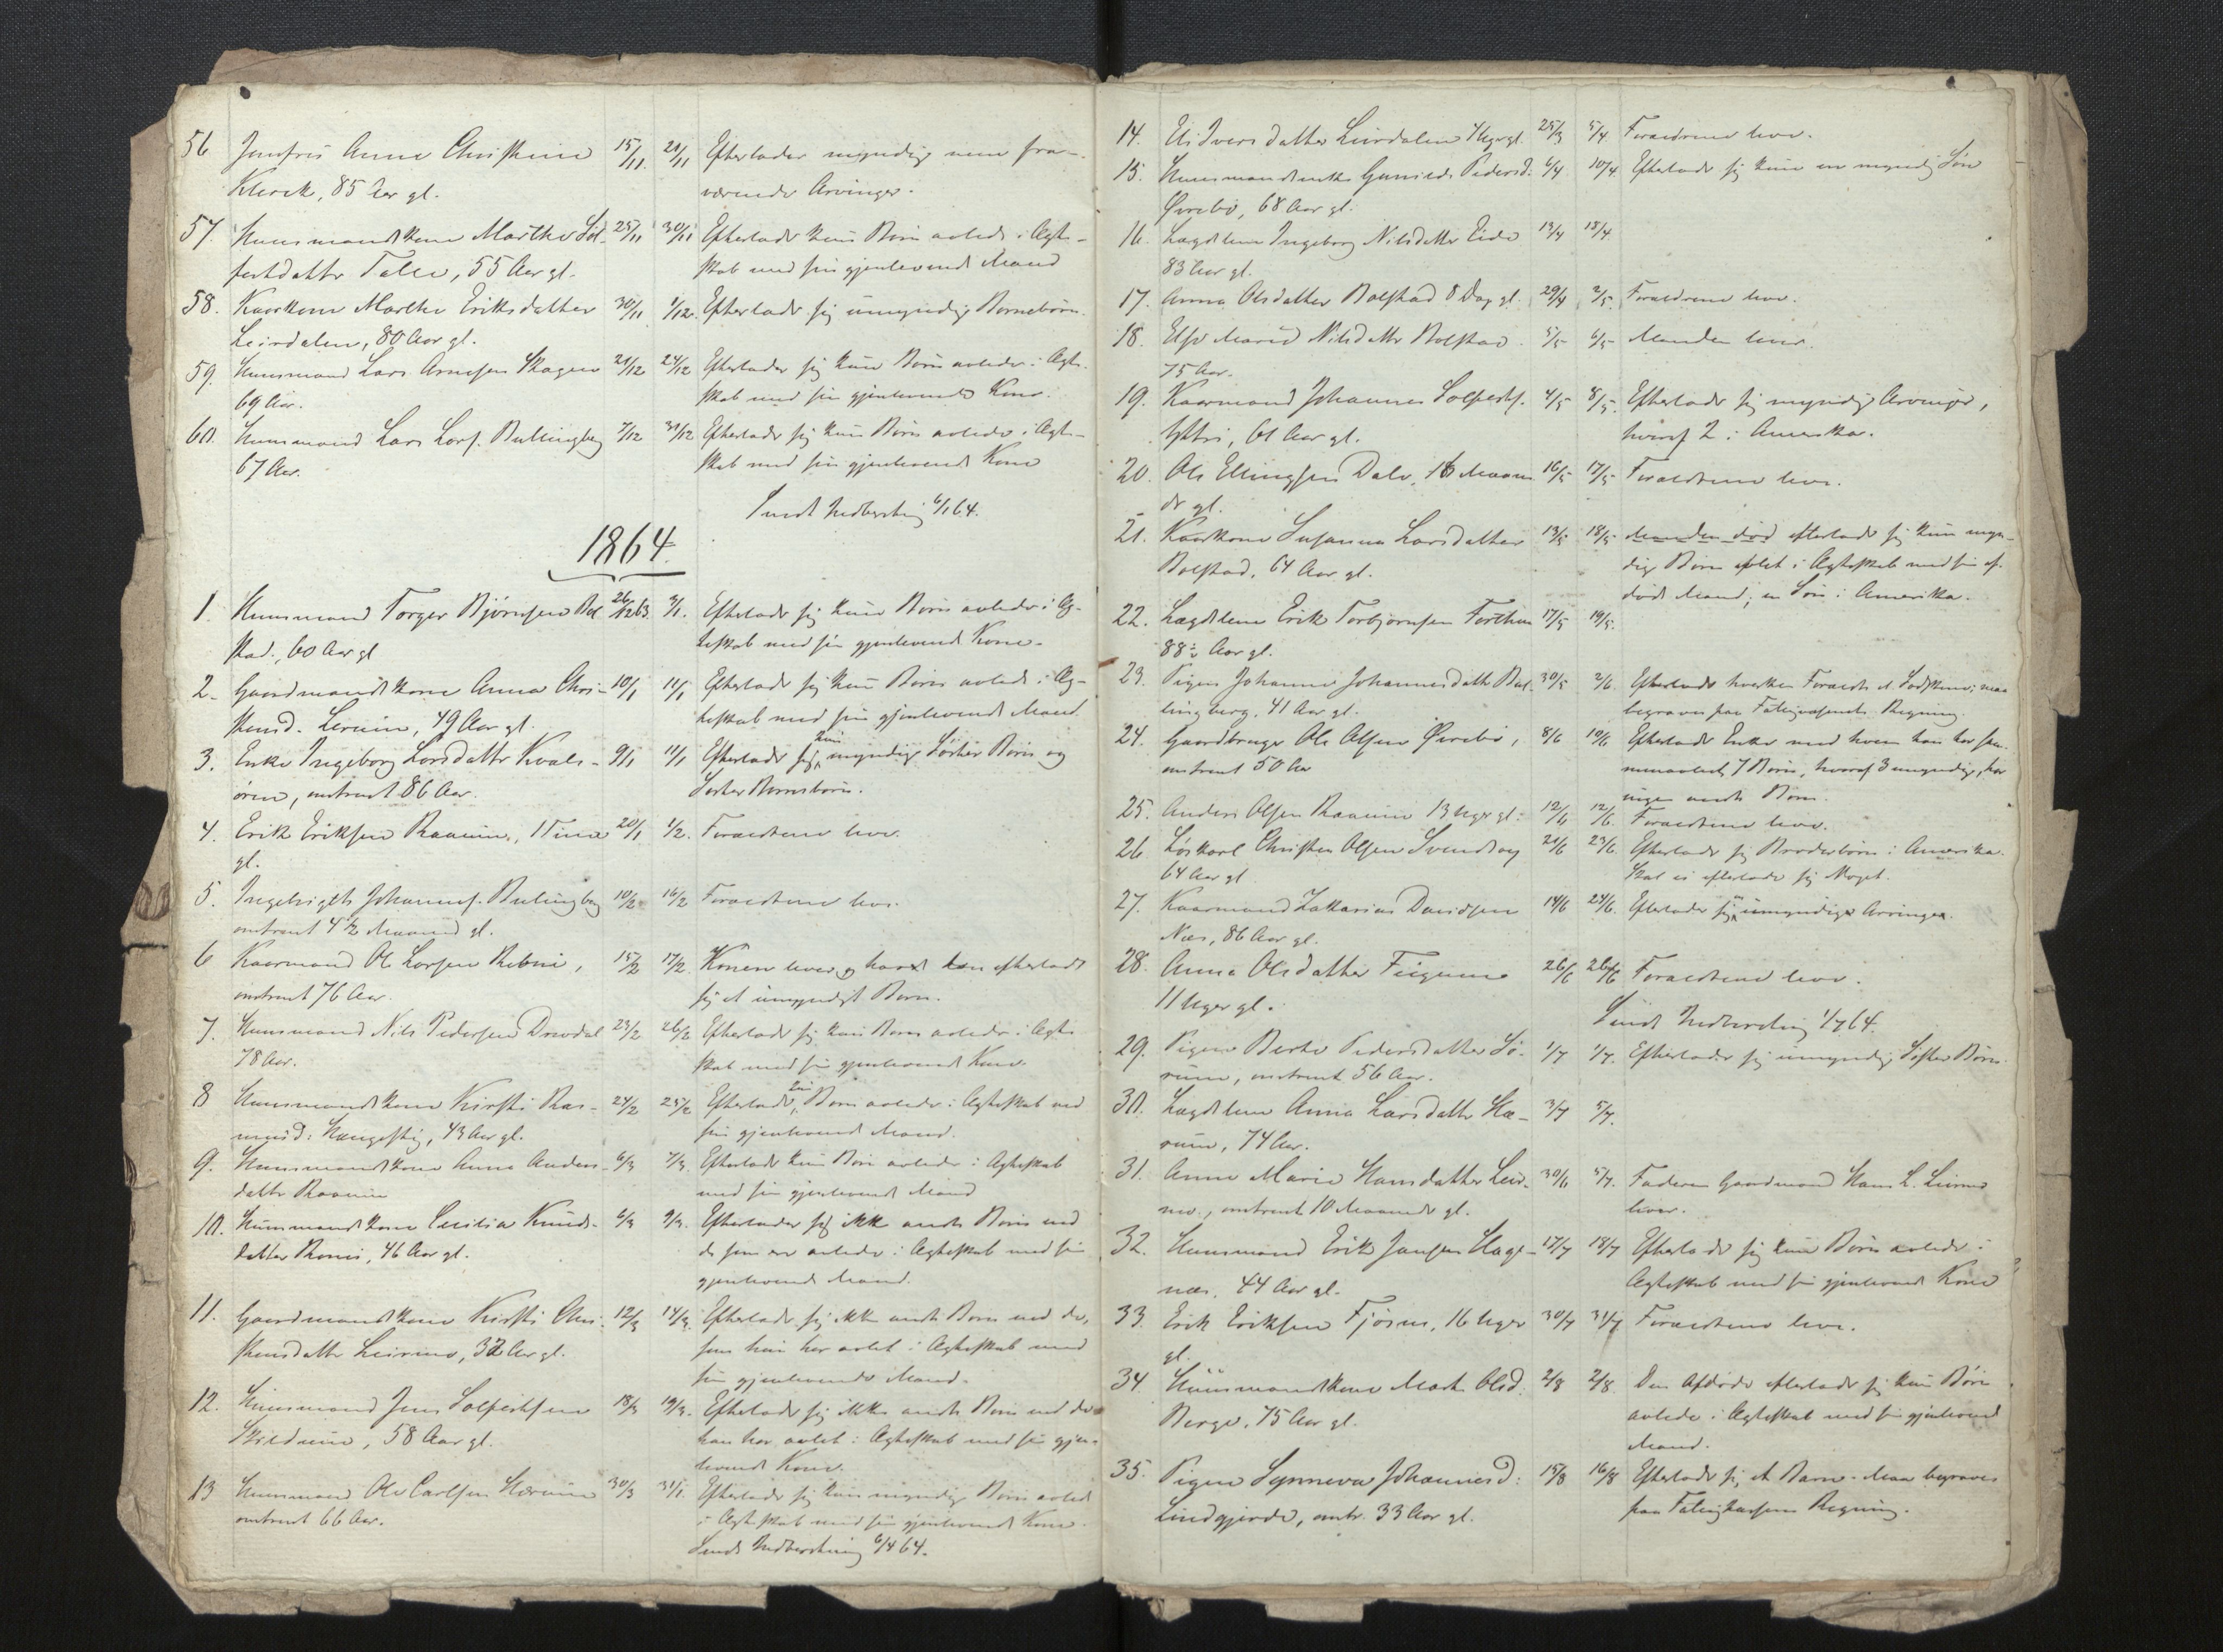 56 Jomfru Anne Christine 15/11 21/11 Efterlader myndige men fra-
Klerck, 85 Aar gl. værende Arvinger.
57. Huusmandskone Marthe Sol- 25/11 30/11 Efterlader kun Børn avlede i Ægte-
festdatter, 55 Aar gl. skab med sin gjenlevende Mand
58. Kaarkone Marthe Eriksdatter 30/11 1/12 Efterlader sig umyndige Børnebørn.
Leirdalen, 80 Aar gl.
59. Huusmand Lars Arnesen Skagen 21/12 24/12 Efterlader sig kun Børn avlede i Ægte-
69 Aar. skab med sin gjenlevende Kone.
60. Huusmand Lars Lars. Bullingberg 7/12 31/12 Efterlader sig kun Børn avlede i Ægte-
67 Aar. skab med sin gjenlevende Kone
Sendt Indberetning 6/1 64.
1864.
1. Huusmand Torger Bjørnsen Bol- 26/12 63 3/1. Efterlader sig kun Børn avlede i Æg-
stad, 60 Aar gl teskab med sin gjenlevende Kone.
2. Gaardmandskone Anna Chri- 10/1 11/1 Efterlader sig kun Børn avlede i Æg-
stensd. 49 Aar gl. teskab med sin gjenlevende Mand.
3. Enke Ingeborg Larsdatter Kvals- 9/1 11/1 Efterlader sig kun myndige Søster Børn og
øren, omtrent 86 Aar. Søster Børnebørn.
4. Erik Eriksen Raaum, 1 Time 20/1 1/2. Forældrene leve.
gl.
5. Ingebrigt Johannes. Bulingberg 10/2 16/2 Forældrene leve.
omtrent 4 1/2 Maaned gl.
6 Kaarmand Ole Larsen, 15/2 17/2 Konen lever og havde han efterladt
omtrent 76 Aar. sig et umyndigt Barn.
7. Huusmand Nils Pedersen Drevdal 23/2 26/2 Efterlader sig kun Børn avlede i Ægte
78 Aar. skab med sin gjenlevende Kone.
8 Huusmandskone Kirsti Ras- 24/2 25/2 Efterlader kun Børn avlede i Ægteskab med
musd: Hangestig, 43 Aar gl. sin gjenlevende Mand.
9. Huusmandskone Anna Anders- 6/3 7/3. Efterlader kun Børn avlede i Ægteskab
datter Raaum med sin gjenlevende Mand
10. Huusmandskone Cecilia Knuds- 6/3 9/3. Efterlader sig ikke andre Børn end
datter, 46 Aar gl. de som ere avlede i Ægteskab med sin
gjenlevende Mand.
11. Gaardmandskone Kirsti Chri- 12/3 14/3. Efterlader sig ikke andre Børn end de,
stensdatter Leirmo, 32 Aar gl. som hun har avlet i Ægteskab med
sin gjenlevende Mand.
12. Huusmand Jens Solfestsen 18/3 19/3. Efterlader sig ikke andre Børn end de
Skildum, 58 Aar gl. han har avlet i Ægteskab med sin gjen-
levende Kone.
13 Huusmand Ole Carlsen Hærum 30/3 31/1. Efterlader sig kun myndige Børn avlede
omtrent 66 Aar. i Ægteskab med sin gjenlevende Kone.
Sendt Indberetning 6/4 64.
14. Eli Iversdatter Leirdalen 4 Uger gl. 25/3 5/4 Forældrene leve.
15. Huusmandsenke Gunild Pedersd. 6/4 10/4. Efterlader sig kun en myndig Søn
Øvrebø, 68 Aar gl.
16. Lægdslem Ingeborg Nilsdatter Eide 13/4 18/4.
83 Aar gl.
17. Anna Olsdatter Bolstad 8 Dag gl. 29/4 2/5. Forældrene leve.
18. Else Marie Nilsdatter Bolstad. 5/5 6/5 Manden lever.
75 Aar.
19. Kaarmand Johannes Solfests. 4/5 8/5. Efterlader sig myndige Arvinger,
61 Aar gl. hvoraf 2 i Amerika.
20. Ole Ellingsen Dale, 16 Maane- 16/5 17/5 Forældrene leve.
der gl.
21. Kaarkone Susanna Larsdatter 13/5 18/5 Manden død efterlader sig kun myn-
Bolstad, 64 Aar gl. dige Børn avlet i Ægteskab med sin af-
døde Mand; en Søn i Amerika.
22. Lægdslem Erik Torbjørnsen Forthun 17/5 19/5.
88 1/2 Aar gl.
23. Pigen Johanne Johannesdatt. Bul- 30/5 2/6. Efterlader hverken Forældre el. Sødskende; maa
lingberg, 41 Aar gl. begraves paa Fattigvæsenets Regning.
24. Gaardbruger Ole Olsen Øvrebø, 8/6 10/6 Efterlader Enke med hvem han har sam-
omtrent 50 Aar menavlet 7 Børn, hvoraf 3 myndige, har
ingen andre Børn.
25. Anders Olsen Raaum 13 Uger gl. 12/6 12/6. Forældrene leve.
26 Løskarl Christen Olsen Svendsøy 21/6 23/6. Efterlader sig Broderbørn i Amerika.
64 Aar gl. Skal ei efterlade sig Noget.
27. Kaarmand Zakarias Davidsen 14/6 24/6. Efterlader sig en umyndig Arving.
Næs, 86 Aar gl.
28. Anna Olsdatter Fuigum 26/6 26/6 Forældrene leve.
11 Uger gl.
Sendt Indberetning 1/7 64.
29. Pigen Berte Pedersdatter Sø- 1/7 1/7. Efterlader sig umyndig Søster Børn.
rum, omtrent 56 Aar.
30. Lægdslem Anna Larsdatter Hæ- 3/7 5/7.
rum, 74 Aar.
31. Anne Marie Hansdatter Leir- 30/6 5/7. Faderen Gaardmand Hans L. Leirmo
mo, omtrent 10 Maaneder gl. lever.
32. Huusmand Erik Jansen Hage- 17/7 18/7 Efterlader sig kun Børn avlede i
næs, 44 Aar gl. Ægteskab med sin gjenlevende Kone
33. Erik Eriksen Fjøsne, 16 Uger 30/7 31/7 Forældrene leve.
gl.
34. Huusmandskone Marte Olsd. 2/8 2/8. Den Afdøde efterlader sig kun Børn
Berge, 75 Aar gl. avlede i Ægteskab med sin gjenlevende
Mand.
35. Pigen Synneva Johannesd: 15/8 16/8 Efterlader sig et Barn. Maa begraves
Lindgjerde, omtr. 33 Aar gl. paa Fattigkassens Regning.